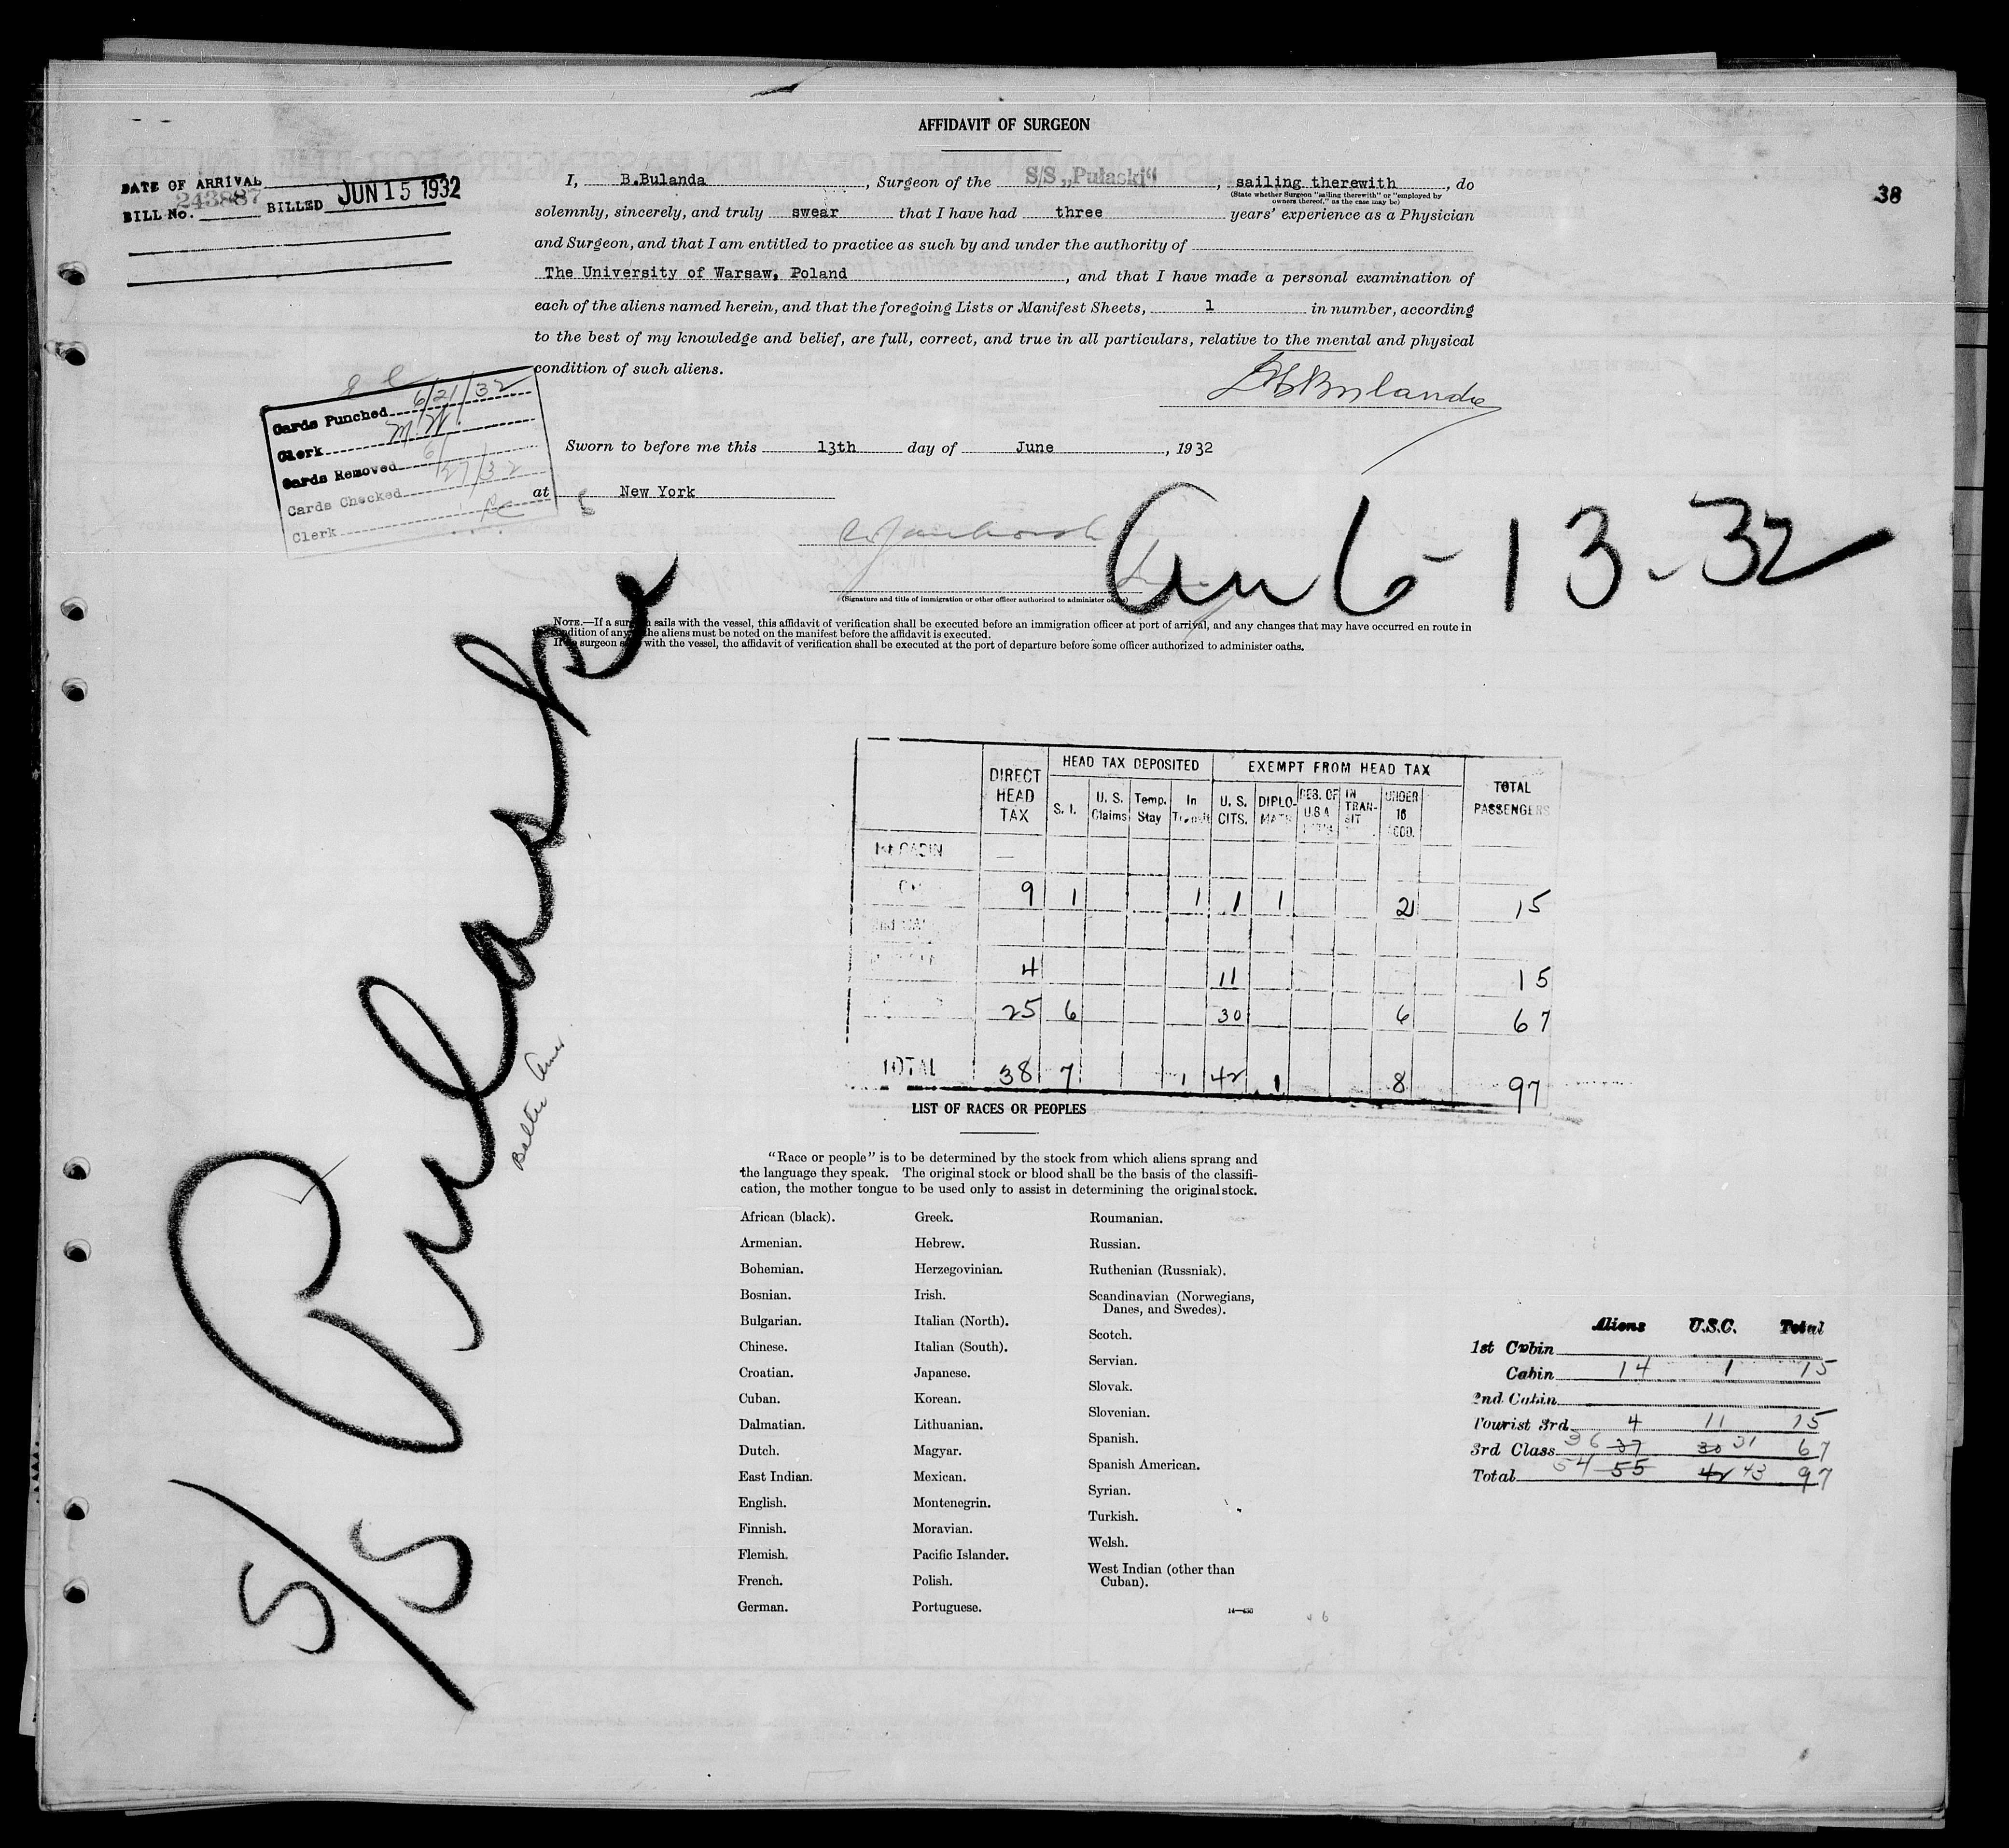 AFFIDAVIT OF SURGEON
DATE OF ARRIVAL
243887
BILL No. BILLED JUN 15 1932
38
I, B.Bulanda, Surgeon of the S/S „Pułaski“, sailing therewith, do
(State whether Surgeon "sailing therewith" or "employed by
owners thereof," as the case may be)
solemnly, sincerely, and truly swear that I have had three years' experience as a Physician
and Surgeon, and that I am entitled to practice as such by and under the authority of
The University of Warsaw, Poland, and that I have made a personal examination of
each of the aliens named herein, and that the foregoing Lists or Manifest Sheets, 1 in number, according
to the best of my knowledge and belief, are full, correct, and true in all particulars, relative to the mental and physical
condition of such aliens.
Bulanda
Cards Punched 6/21/32
Clerk M.W.
Cards Removed
Cards Checked 6/27/32
Clerk
Sworn to before me this 13th day of June, 1932
at New York
Arr 6-13-32
(Signature and title of immigration or other officer authorized to administer oaths)
NOTE.—If a surgeon sails with the vessel, this affidavit of verification shall be executed before an immigration officer at port of arrival, and any changes that may have occurred en route in
the condition of any of the aliens must be noted on the manifest before the affidavit is executed.
If surgeon with the vessel, the affidavit of verification shall be executed at the port of departure before some officer authorized to administer oaths.
S/S Pulaski
DIRECT HEAD TAX HEAD TAX DEPOSITED EXEMPT FROM HEAD TAX TOTAL PASSENGERS
S. I. U. S. Claims Temp. Stay In Transit U. S. CITS. DIPLOMATS RES. OF U S A IN TRANSIT UNDER 16 ACCD.
1st CABIN —
9 1 1 1 1 2 15
4 11 15
25 6 30 6 67
TOTAL 38 7 1 42 1 8 97
LIST OF RACES OR PEOPLES
"Race or people" is to be determined by the stock from which aliens sprang and
the language they speak. The original stock or blood shall be the basis of the classifi-
cation, the mother tongue to be used only to assist in determining the original stock.
African (black).
Armenian.
Bohemian.
Bosnian.
Bulgarian.
Chinese.
Croatian.
Cuban.
Dalmatian.
Dutch.
East Indian.
English.
Finnish.
Flemish.
French.
German.
Greek.
Hebrew.
Herzegovinian.
Irish.
Italian (North).
Italian (South).
Japanese.
Korean.
Lithuanian.
Magyar.
Mexican.
Montenegrin.
Moravian.
Pacific Islander.
Polish.
Portuguese.
Roumanian.
Russian.
Ruthenian (Russniak).
Scandinavian (Norwegians,
Danes, and Swedes).
Scotch.
Servian.
Slovak.
Slovenian.
Spanish.
Spanish American.
Syrian.
Turkish.
Welsh.
West Indian (other than
Cuban).
Aliens U.S.C. Total
1st Cabin
Cabin 14 1 15
2nd Cabin
Tourist 3rd 4 11 15
3rd Class 36 37 30 31 67
Total 54 55 42 43 97